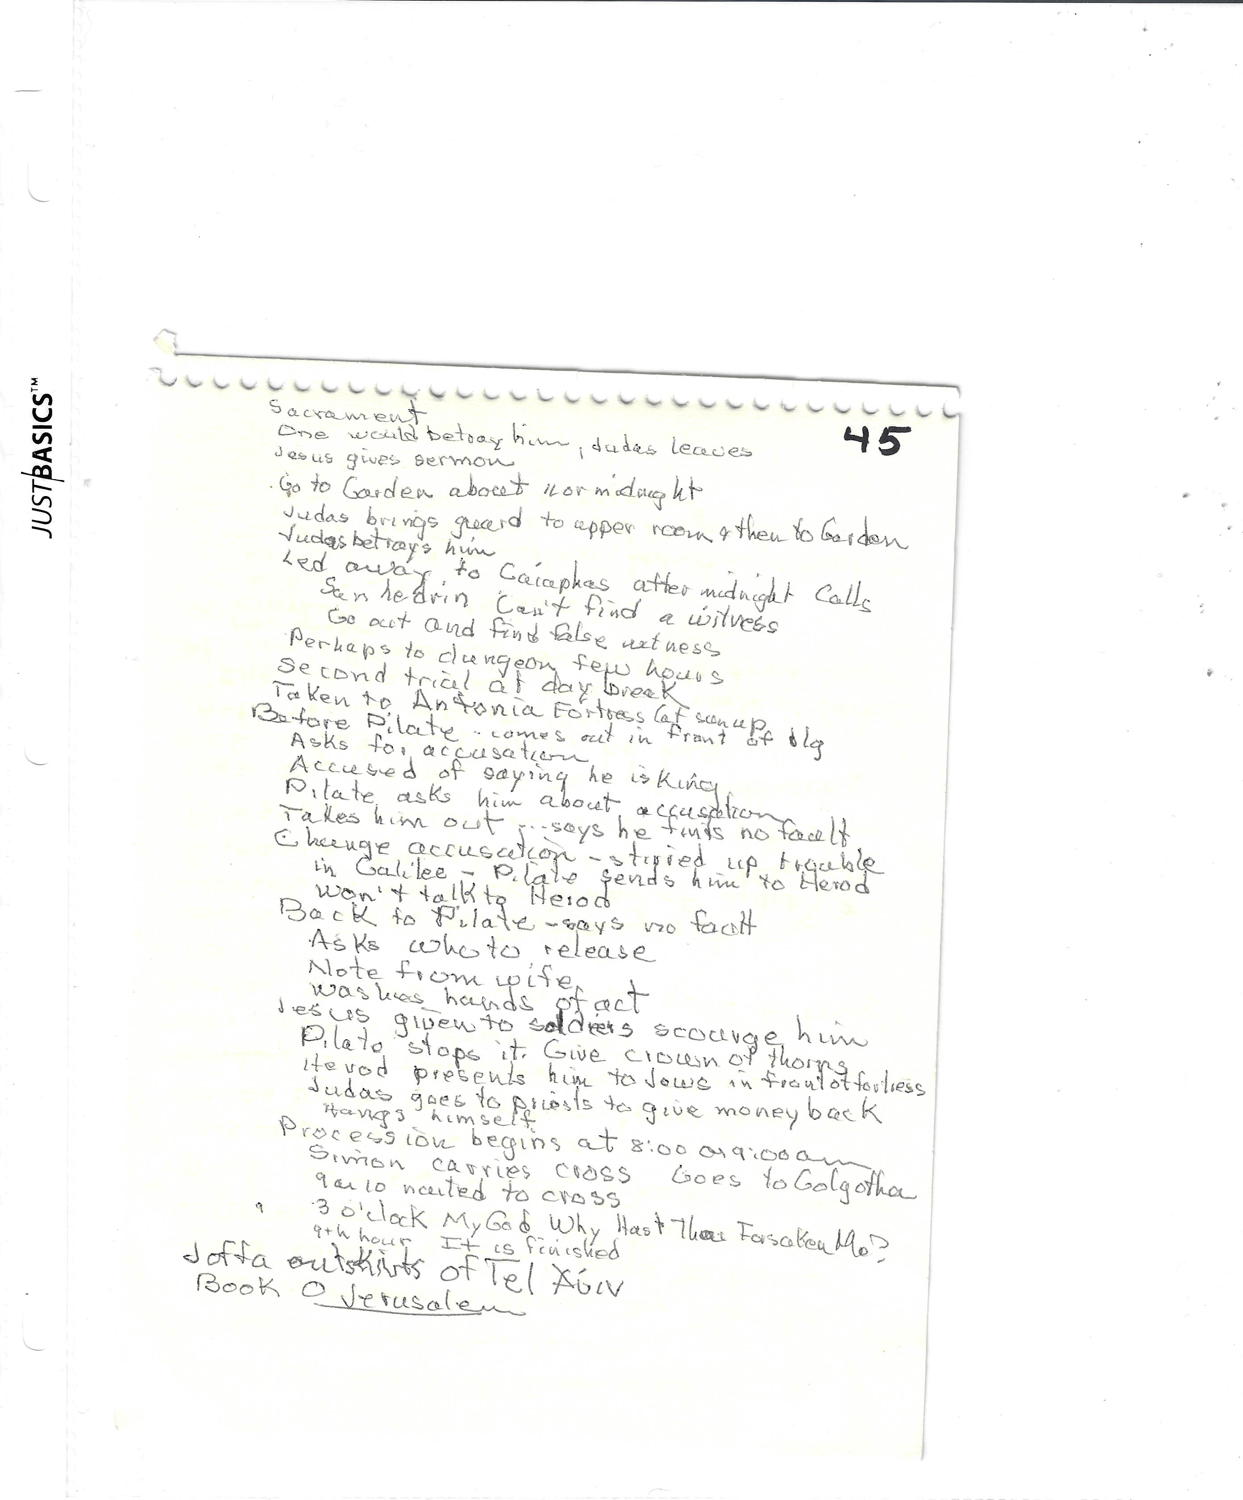 JUST/BASICS™
45
Sacrament
One would betray him, Judas leaves
Jesus gives sermon
Go to Garden about 11 or midnight
Judas brings guard to upper room & then to Garden
Judas betrays him
Led away to Caiaphas after midnight Calls
Sanhedrin Can't find a witness
Go out and find false witness
Perhaps to dungeon few hours
Second trial at day break
Taken to Antonia Fortress (at sunup
Before Pilate - comes out in front of blg
Asks for accusation
Accused of saying he is King
Pilate asks him about accusation
Takes him out ... says he finds no fault
Change accusation - stirred up trouble
in Galilee - Pilate sends him to Herod
Won't talk to Herod
Back to Pilate - says no fault
Asks who to release
Note from wife
washes hands of act
Jesus given to soldiers scourge him
Pilate stops it. Give crown of thorns
Herod presents him to Jews in front of fortress
Judas goes to priests to give money back
Hangs himself
Procession begins at 8:00 or 9:00 am
Simon carries cross Goes to Golgotha
9 or 10 nailed to cross
3 o'clock My God Why Hast Thou Forsaken Me?
9th hour It is finished
Joffa outskirts of Tel Aviv
Book O Jerusalem